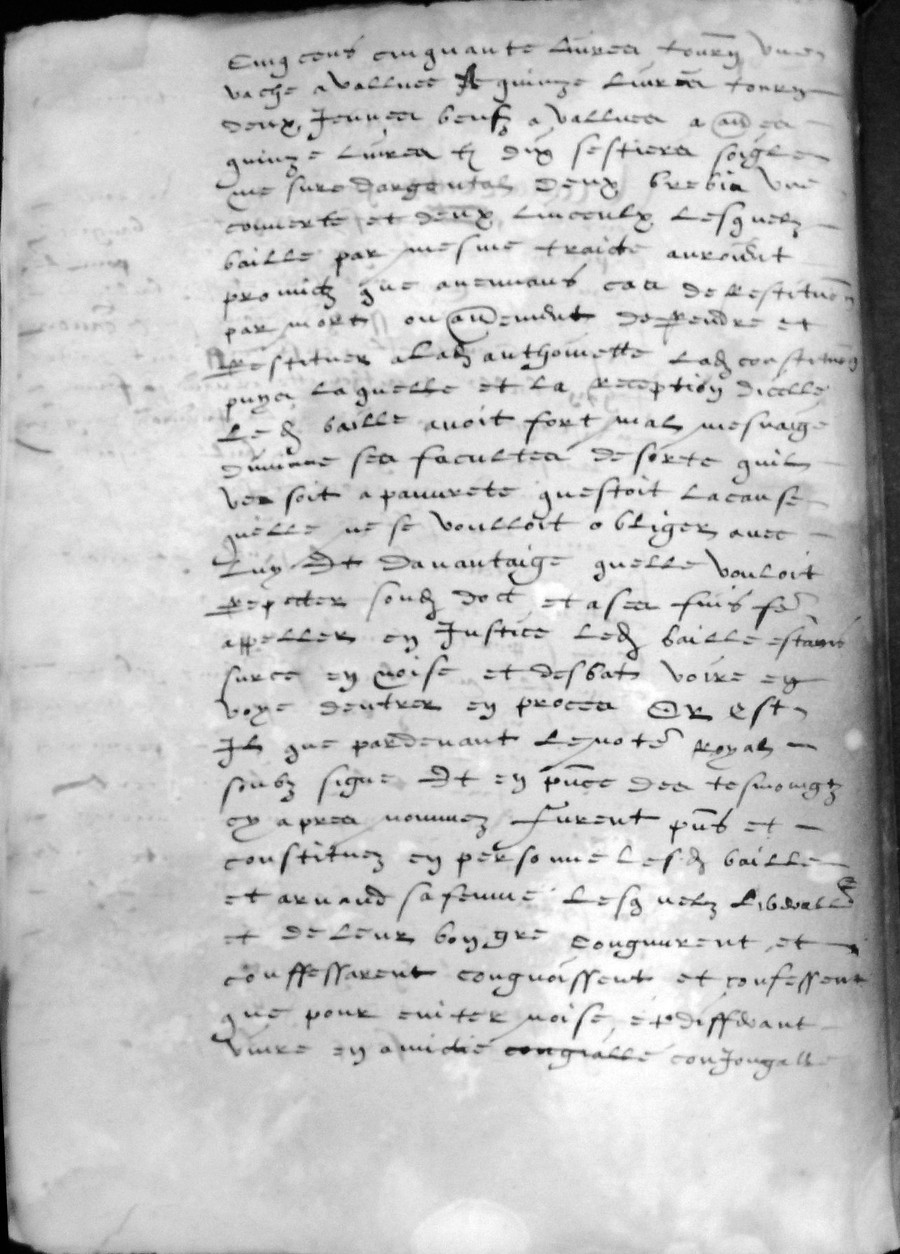 Cinq cens cinquante livres tourn une
vache a vallues de quinze livres tourn
deux Jeunes beufz a vallues a
quinze livres dix sestiers soigle
mesure dargental deux brebis une
couverte et deux linceulx lesquelz
baille par mesme traicte auroient
promis que avenant cas de restitution
par mort ou aultrement de rendre et
Restituer a lad anthoinette lad constitution
puys laquelle et la reception dicelle
led baille avoit fort mal mesnaige
diminue ses facultes de sorte quil
versoit a pauvrete questoit la cause
quelle ne se voulloit obliger avec
luy Et davantaige quelle vouloit
Repeter sond dot et a ses fins fe
appeller en Justice led baille estans
surce en noise et desbat voire en
voye dentrer en proces Or Est
Il que pardevant le note Royal
soubz signe Et en pnce des tesmoingtz
cy apres nommez Furent pns et
constituez en personne lesd baille
et arnaud sa femme lesquelz
et de leur bon gre congnurent et
conffessarent congnoissent et confessent
que pour eviter noise et diffdant
vivre en amictie congialle conJougalle